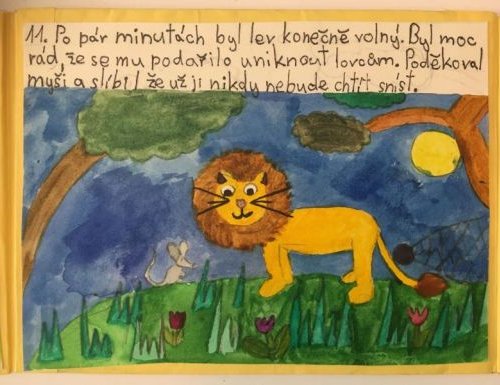 11. Po pár minutách byl lev konečně volný. Byl moc
rád, že se mu podařilo uniknout lovcům. Poděkoval
myši a slíbil že už ji nikdy nebude chtít sníst.